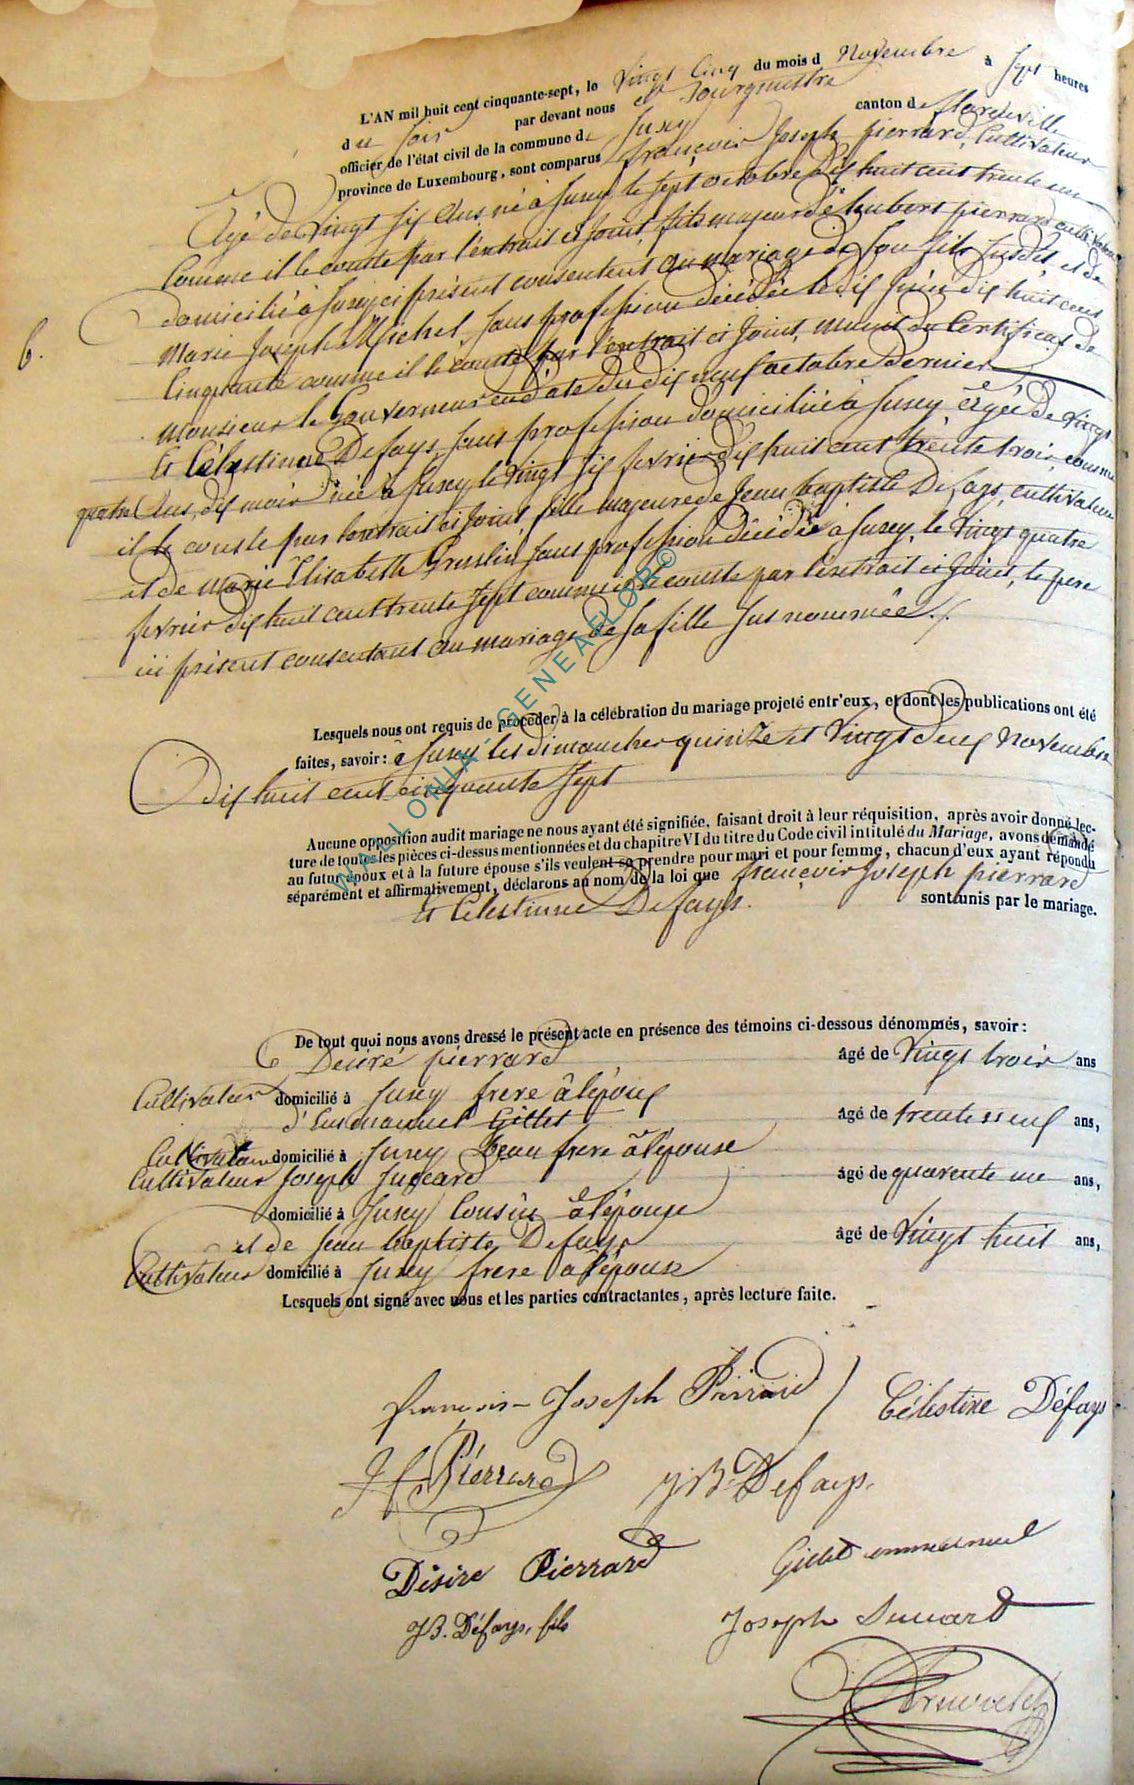 L'AN mil huit cent cinquante-sept, le Vingt Cinq du mois d Novembre à Sept heures
d u soir par devant nous Bourgmestre
officier de l'état civil de la commune de Jusey canton de flordeville
province de Luxembourg, sont comparus françois Joseph pierrard, Cultivateur
Agé de Vingt Six Ans, né à Jusey le Sept octobre dix huit cent trente un
Comme il le conste par l'extrait ci Joint, fils majeur de hubert pierrard cultivateur
domicilié à Jusey ci présent consentent au mariage de Son fils Susdit, et de
Marie Joseph Michel, Sans profession décédée le dix Juin dix huit cent
Cinquante comme il le conste par l'extrait ci Joint, muni du Certificat de
6.
Monsieur le Gouverneur en date du dix neuf octobre dernier
Et Célestinne Defays, Sans profession domiciliée à Jusey âgée de Vingt
quatre Ans, dix mois née à Jusey le Vingt Six fevrier dix huit cent trente trois, comme
il le conste par l'extrait ci Joint, fille majeure de Jean baptiste Defays, cultivateur
et de Marie Élisabeth Gruslin Sans profession décédée à Jusey, le Vingt quatre
fevrier dix huit cent trente Sept comme il le conste par l'extrait ci Joint, le pere
ici présent consentant au mariage de Sa fille Sus nommée./.
Lesquels nous ont requis de procéder à la célébration du mariage projeté entr'eux, et dont les publications ont été
faites, savoir: à Jusey les dimanches quinze et Vingt deux Novembre
Dix huit cent cinquante Sept
Aucune opposition audit mariage ne nous ayant été signifiée, faisant droit à leur réquisition, après avoir donné lec-
ture de toutes les pièces ci-dessus mentionnées et du chapitre VI du titre du Code civil intitulé du Mariage, avons demandé
au futur époux et à la future épouse s'ils veulent se prendre pour mari et pour femme, chacun d'eux ayant répondu
séparément et affirmativement, déclarons au nom de la loi que françois Joseph pierrard
Et Célestinne Defays. sont unis par le mariage.
De tout quoi nous avons dressé le présent acte en présence des témoins ci-dessous dénommés, savoir:
Desiré pierrard âgé de Vingt trois ans
Cultivateur domicilié à Jusey frere à l'époux
d'Emmanuel Gillet âgé de trente neuf ans,
Cultivateur domicilié à Jusey Beau frere à l'épouse
Cultivateur Joseph Suscard âgé de quarente un ans,
domicilié à Jusey Cousin à l'épouse
et de Jean baptiste Defays âgé de Vingt huit ans,
Cultivateur domicilié à Jusey frere à l'épouse
Lesquels ont signé avec nous et les parties contractantes, après lecture faite.
françois-Joseph Pierrard Célestine Défays
H Pierrard J B. Defays.
Désiré Pierrard Gillet emmanuel
JB. Défays, fils Joseph
WALLONIA GENEAFLOR©